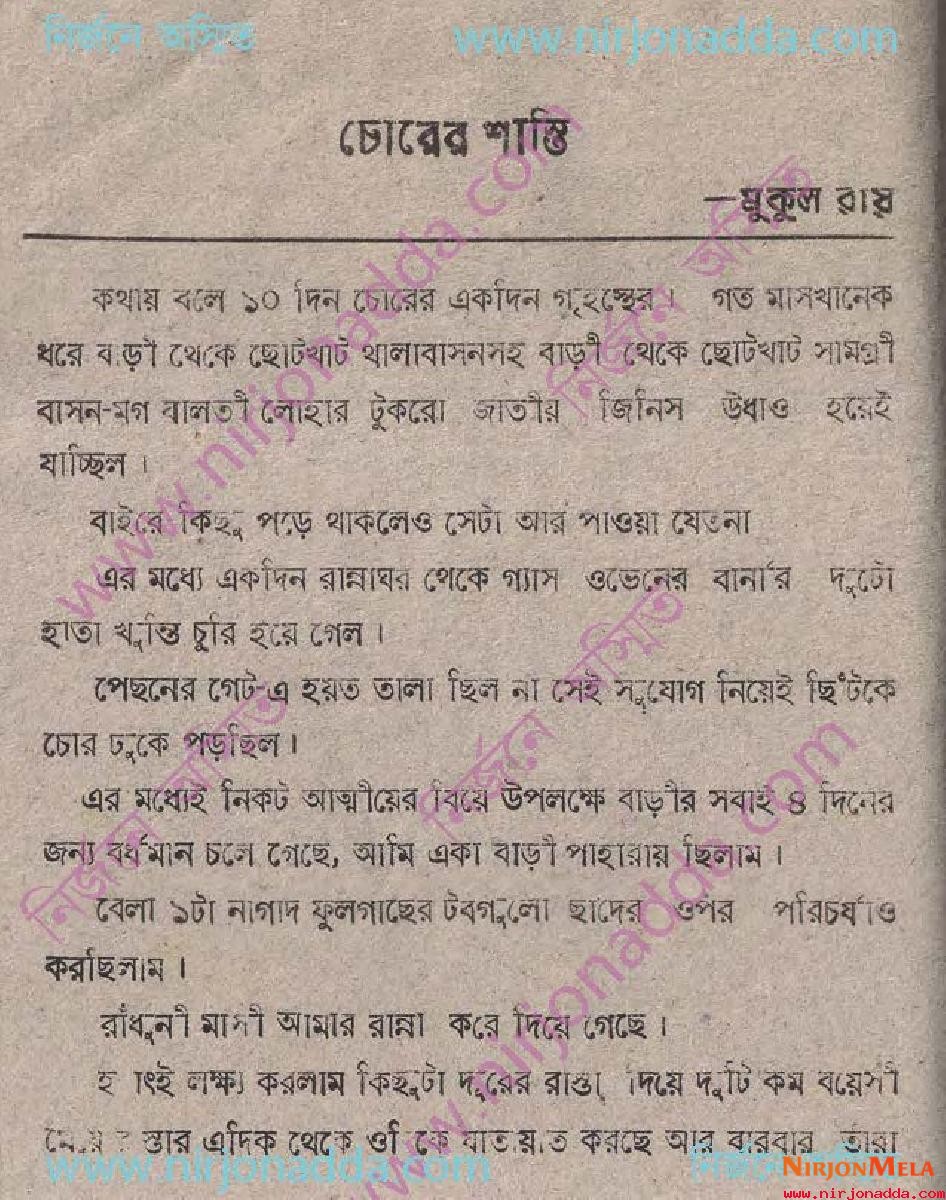 নির্জনে অস্মিত www.nirjonadda.com
চোরের শাস্তি
—মুকুল রায়
কথায় বলে ১০ দিন চোরের একদিন গৃহস্থের। গত মাসখানেক
ধরে বাড়ী থেকে ছোটখাট থালাবাসনসহ বাড়ী থেকে ছোটখাট সামগ্রী
বাসন-মগ বালতী লোহার টুকরো জাতীয় জিনিস উধাও হয়েই
যাচ্ছিল।
বাইরে কিছু পড়ে থাকলেও সেটা আর পাওয়া যেতনা
এর মধ্যে একদিন রান্নাঘর থেকে গ্যাস ওভেনের বার্নার দুটো
হাতা খুন্তি চুরি হয়ে গেল।
পেছনের গেট-এ হয়ত তালা ছিল না সেই সুযোগ নিয়েই ছিঁটকে
চোর ঢুকে পড়ছিল।
এর মধ্যেই নিকট আত্মীয়ের বিয়ে উপলক্ষে বাড়ীর সবাই ৪ দিনের
জন্য বর্ধমান চলে গেছে, আমি একা বাড়ী পাহারায় ছিলাম।
বেলা ১টা নাগাদ ফুলগাছের টবগুলো ছাদের ওপর পরিচর্যাও
করছিলাম।
রাঁধুনী মাসী আমার রান্না করে দিয়ে গেছে।
হঠাৎই লক্ষ্য করলাম কিছুটা দূরের রাস্তা দিয়ে দুটি কম বয়েসী
মেয়ে রাস্তার এদিক থেকে ওদিকে যাতায়াত করছে আর বারবার তারা
www.nirjonadda.com
NIRJONMELA
www.nirjonadda.com